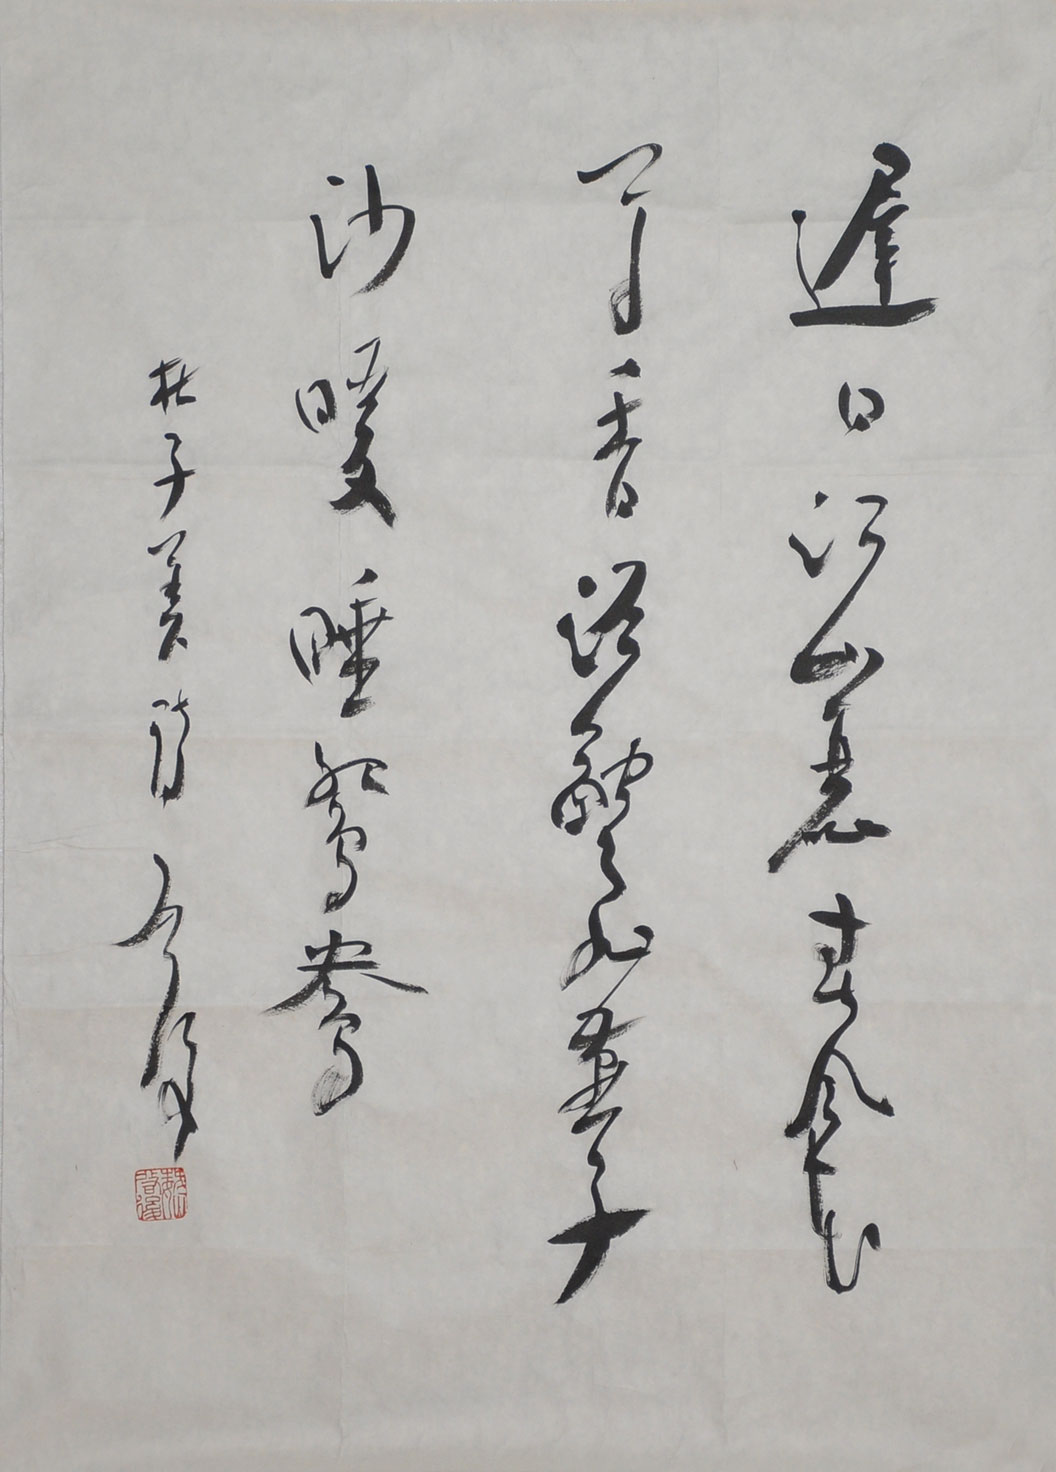 遲日江山麗春風花
草香泥融飛燕子
沙暖睡鴛鴦
杜子美詩 启後
魏启後